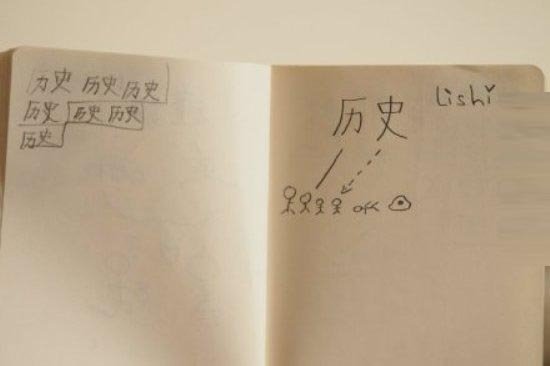 历史 历史 历史
历史 历史 历史
历史
Lishi
历史